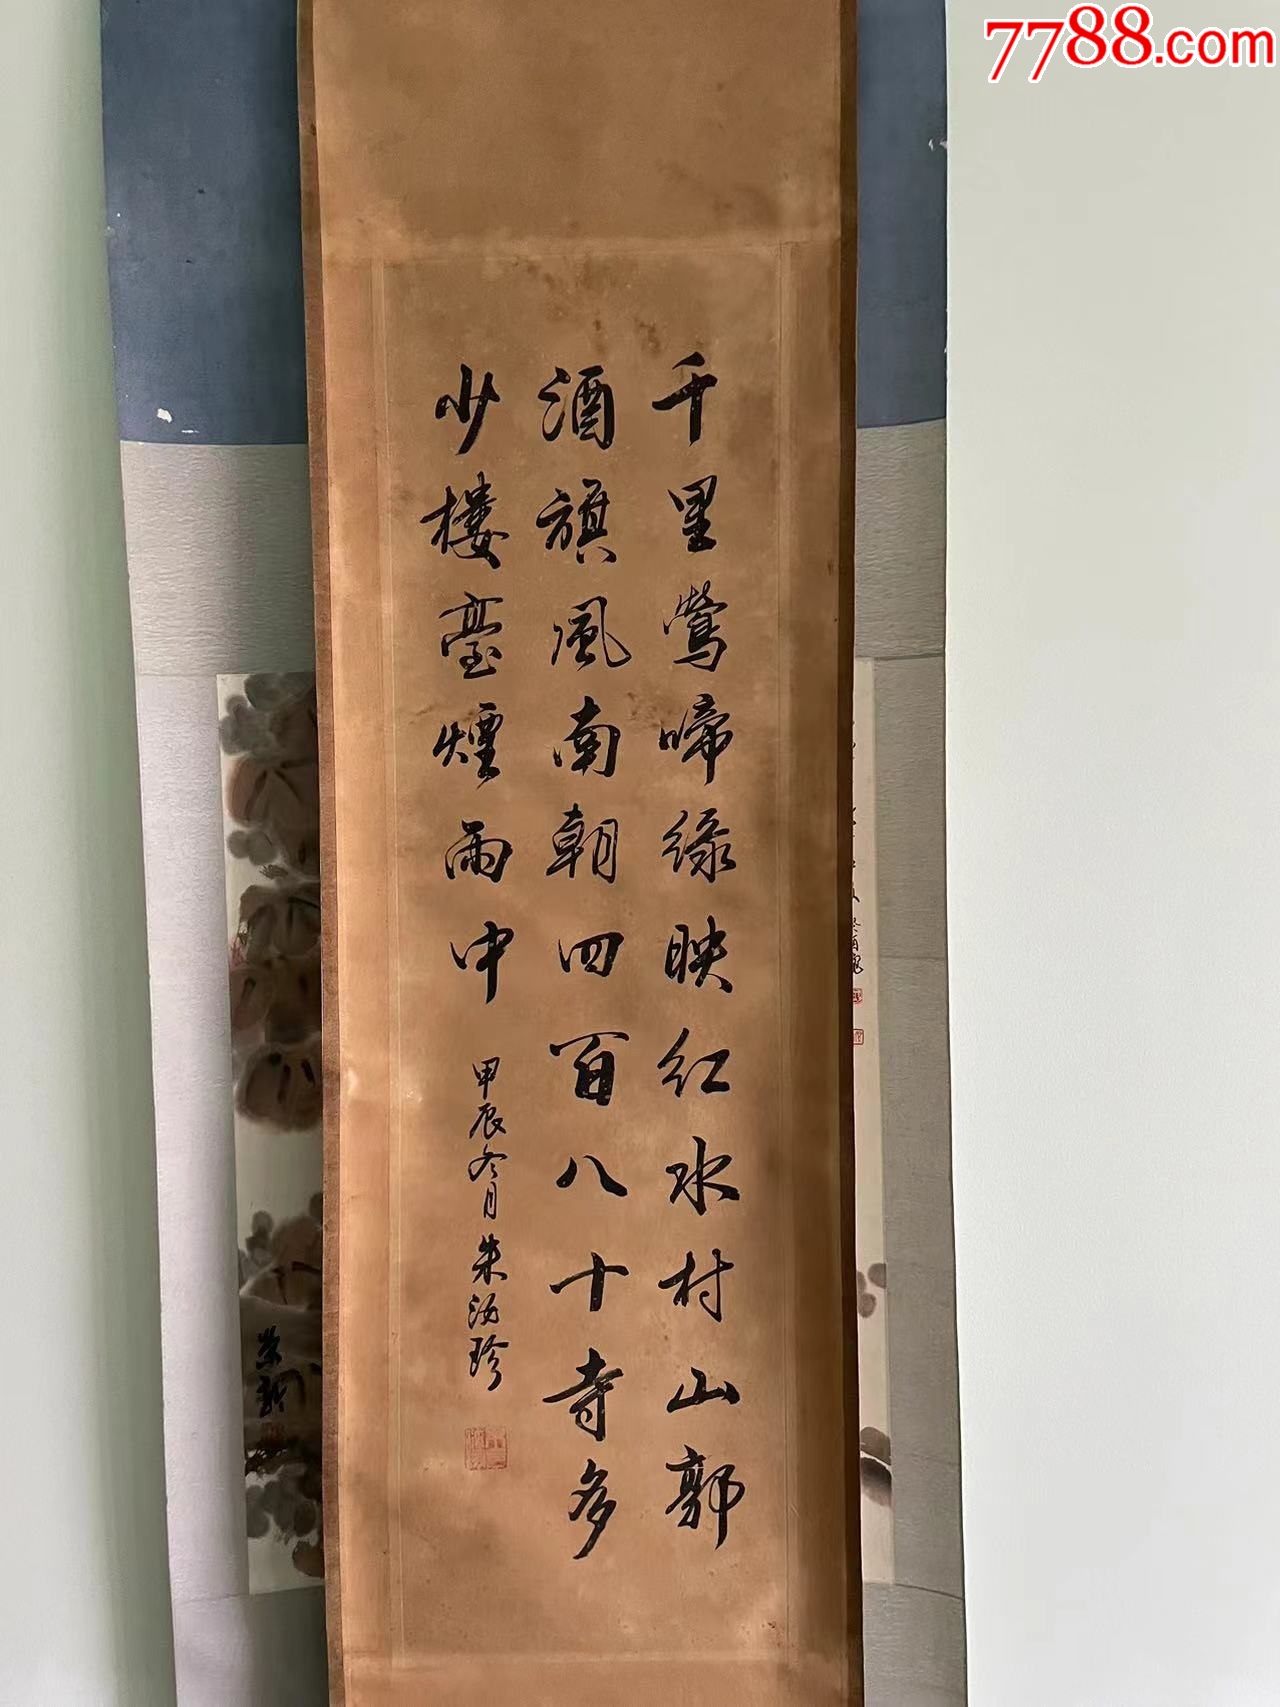 7788.com
千里鶯啼緑映紅水村山郭
酒旗風南朝四百八十寺多
少樓臺煙雨中
甲辰冬月朱汝珍